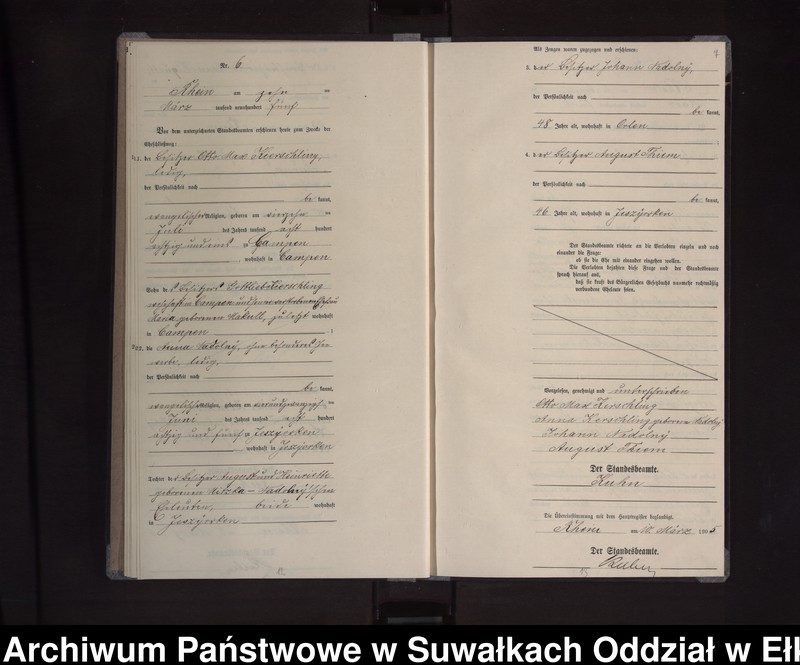 Nr. 6
Rhein am zehn ten
März tausend neunhundert fünf
Vor dem unterzeichneten Standesbeamten erschienen heute zum Zwecke der
Eheschließung:
1. der Besitzer Otto Max Kerschling,
ledig,
der Persönlichkeit nach
be kannt,
evangelischer Religion, geboren am vierzehn ten
Juli des Jahres tausend acht hundert
achtzig und eins in Campen
, wohnhaft in Campen
Sohn des Besitzers Gottlieb Kerschling
wohnhaft in Campen und
geborenen zuletzt wohnhaft
in Campen
2. die Anna Nadolny, ohne besonderes Ge-
werbe, ledig,
der Persönlichkeit nach
be kannt,
evangelischer Religion, geboren am ten
Juni des Jahres tausend acht hundert
achtzig und fünf in Jeszyorken
, wohnhaft in Jeszyorken
Tochter der Besitzer August und Heinriette
geborenen - Nadolny'schen
Eheleuten, beide wohnhaft
in Jeszyorken
11.
Als Zeugen waren zugezogen und erschienen:
7
3. der Besitzer Johann Nadolny,
der Persönlichkeit nach
be kannt,
48 Jahre alt, wohnhaft in Orlen
4. der Besitzer August Thiem
der Persönlichkeit nach
be kannt,
46 Jahre alt, wohnhaft in Jeszyorken
Der Standesbeamte richtete an die Verlobten einzeln und nach
einander die Frage:
ob sie die Ehe mit einander eingehen wollen.
Die Verlobten bejahten diese Frage und der Standesbeamte
sprach hierauf aus,
daß sie kraft des Bürgerlichen Gesetzbuchs nunmehr rechtmäßig
verbundene Eheleute seien.
Vorgelesen, genehmigt und unterschrieben
Otto Max Kerschling
Anna Kerschling geborene Nadolny
Johann Nadolny
August Thiem
Der Standesbeamte.
Kuhn
Die Übereinstimmung mit dem Hauptregister beglaubigt.
Rhein am 10. März 1905
Der Standesbeamte.
Kuhn
Archiwum Państwowe w Suwałkach Oddział w Ełk